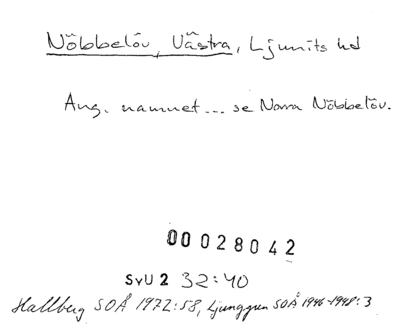 Nöbbelöv, Västra, Ljunits hd
Ang. namnet... se Norra Nöbbelöv.
00028042
SvU 2 32:40
Hallberg SOÅ 1972:58, Ljunggren SOÅ 1946-1948:3